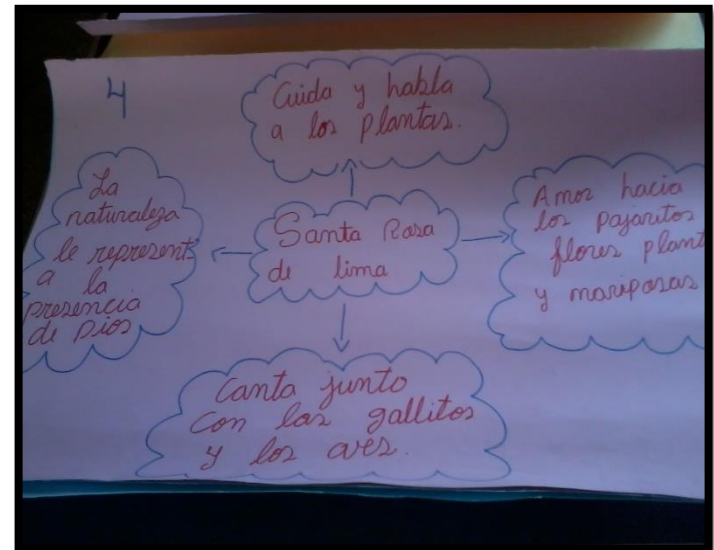 4
Cuida y habla
a los plantas.
La
naturaleza
le represent
a la
presencia
de Dios
Santa Rosa
de lima
Amor hacia
los pajaritos
flores plant
y mariposas
Canta junto
con los gallitos
y los aves.